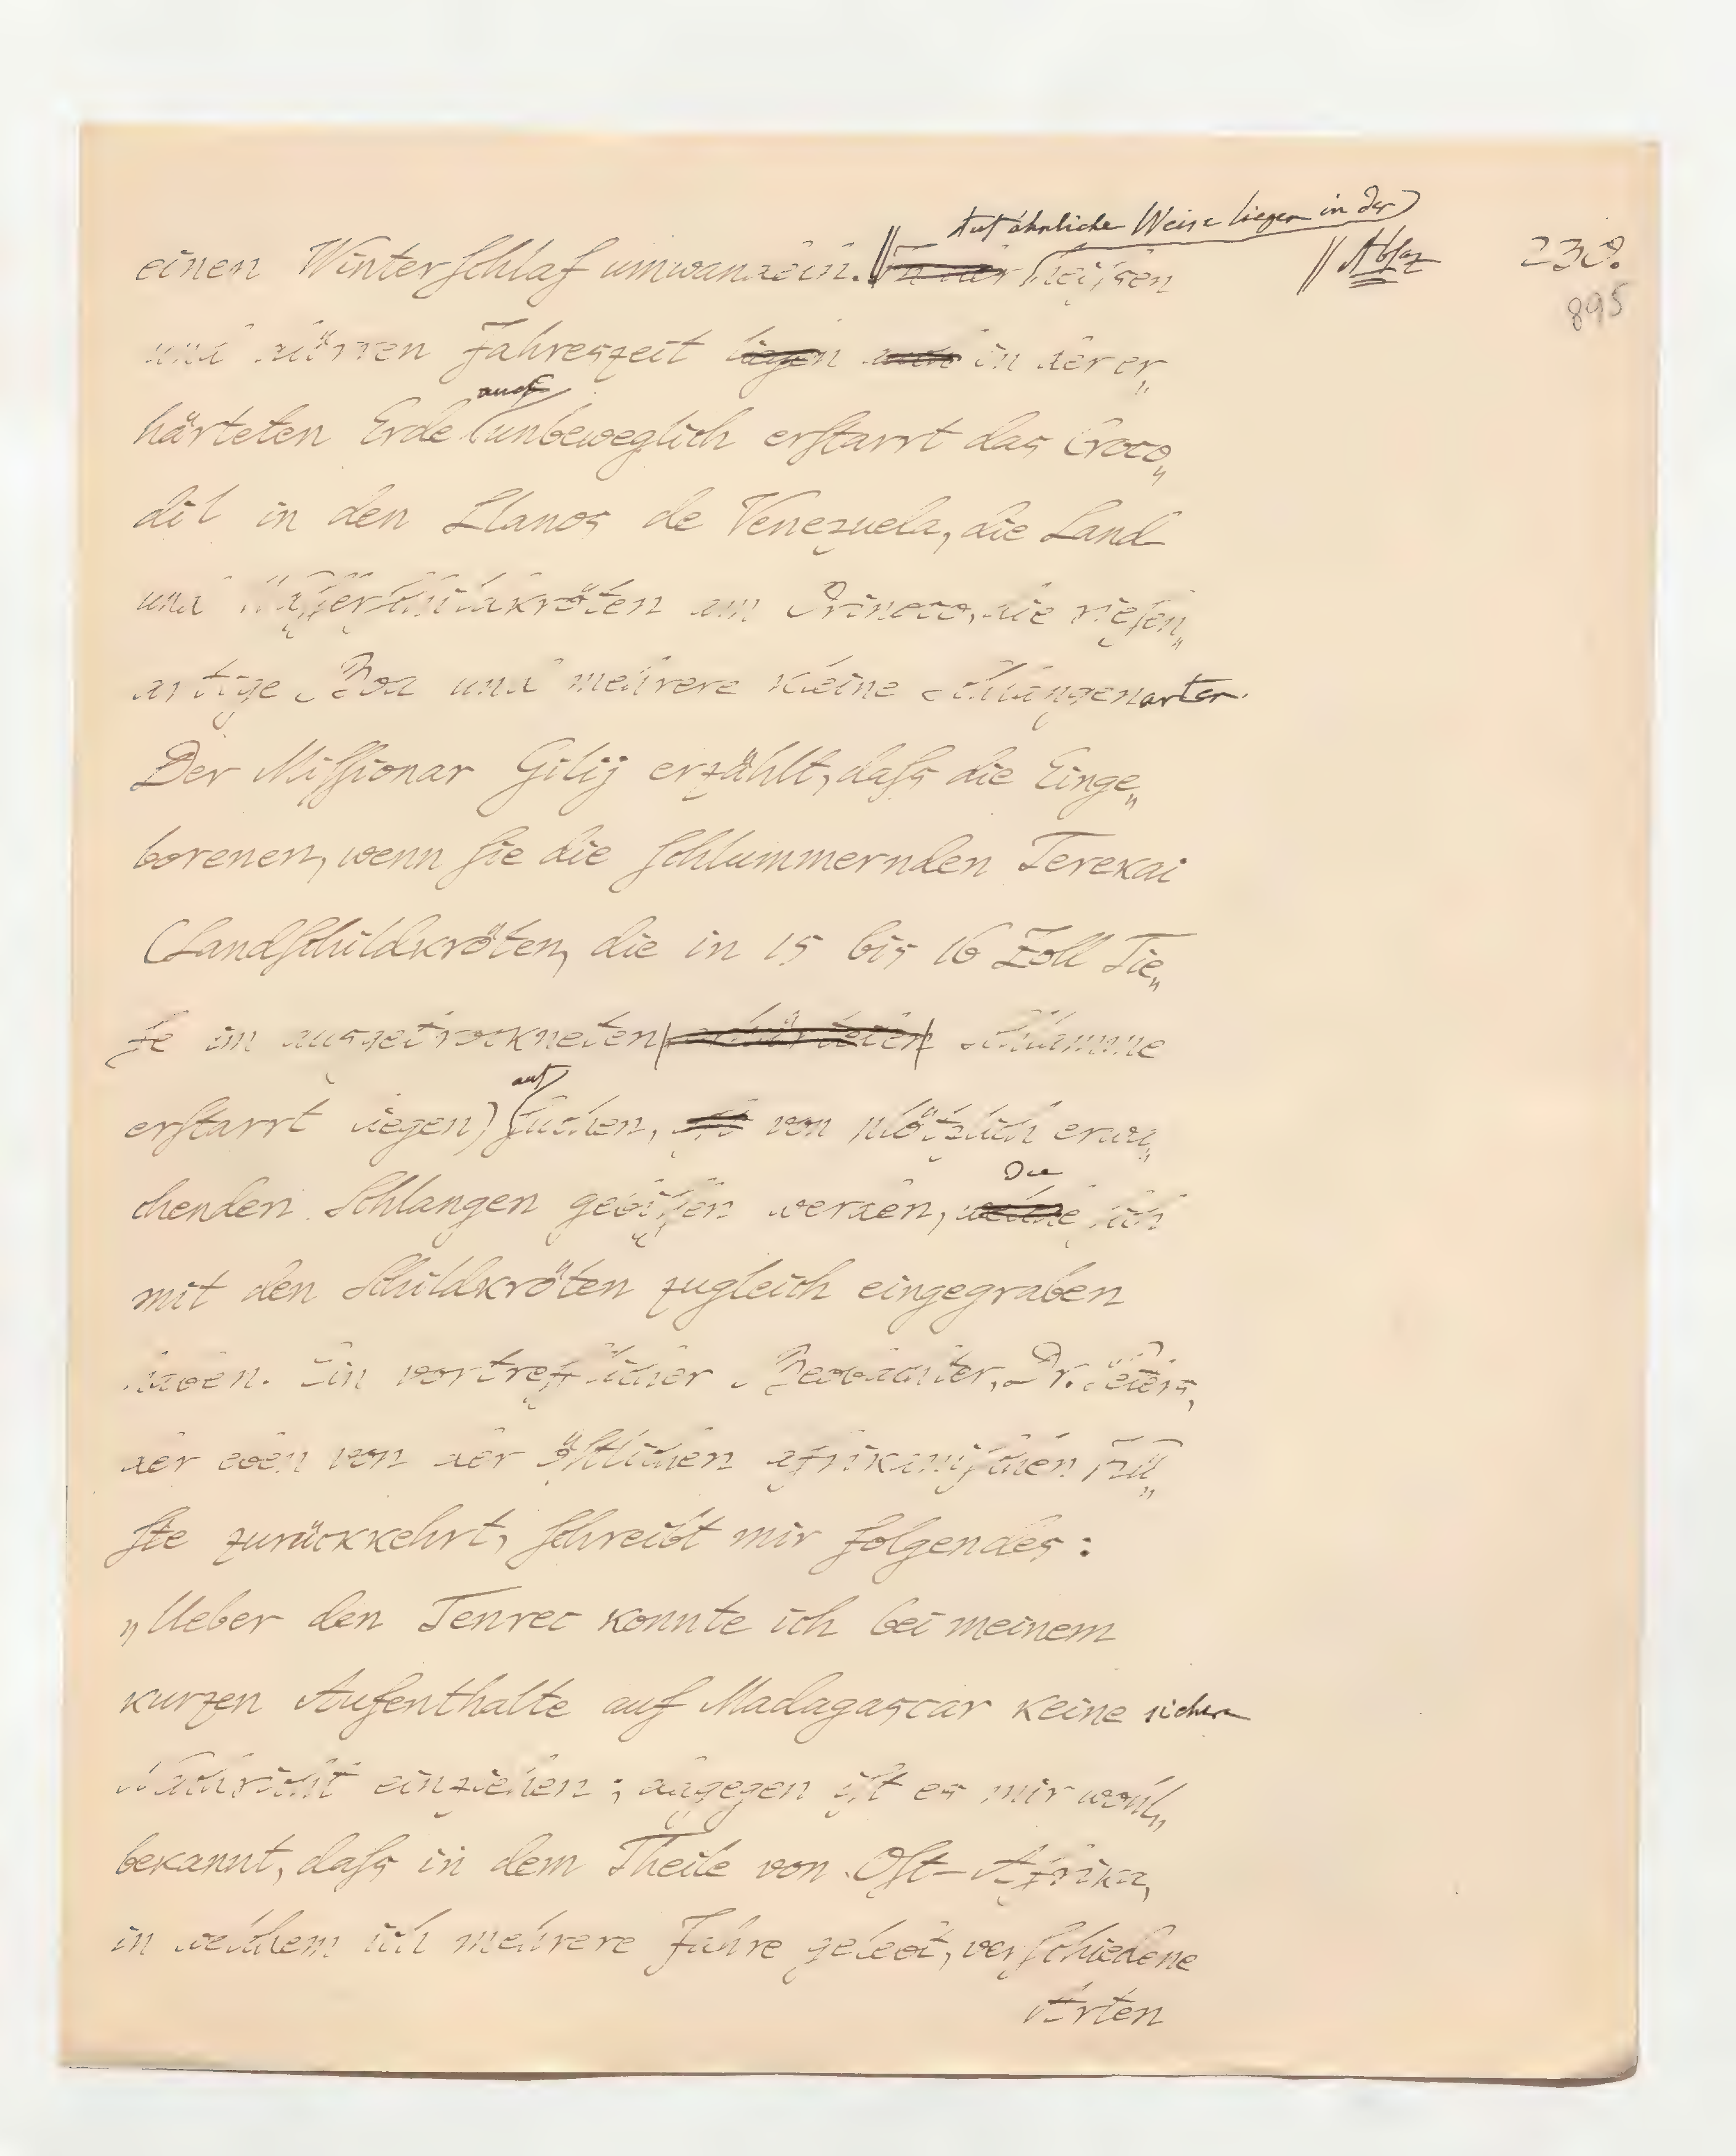 Auf ähnliche Weise liegen in der
einen Winterschlaf umwandeln. In der heißen
Absaz
230.
895
und dürren Jahreszeit liegen auch in der er„
auch
härteten Erde unbeweglich erstarrt das Croco„
dil in den Llanos de Venezuela, die Land
und Wasserschildkröten am Orinoco, die riesen„
artige Boa und mehrere kleine Schlangenarten.
Der Missionar Gilij erzählt, dass die Einge„
borenen, wenn sie die schlummernden Terekai
(Landschildkröten, die in 15 bis 16 Zoll Tie„
fe im ausgetrockneten erhärteten Schlamme
auf
erstarrt liegen) suchen, von plötzlich erwa„
Die
chenden Schlangen gebissen werden, welche sich
mit den Schildkröten zugleich eingegraben
haben. Ein vortrefflicher Beobachter, Dr. Peters,
der eben von der östlichen afrikanischen Kü„
ste zurückkehrt, schreibt mir folgendes:
„Ueber den Tenrec konnte ich bei meinem
kurzen Aufenthalte auf Madagascar keine sichere
Nachricht einziehen; dagegen ist es mir wohl„
bekannt, dass in dem Theile von Ost-Afrika,
in welchem ich mehrere Jahre gelebt, verschiedene
Arten